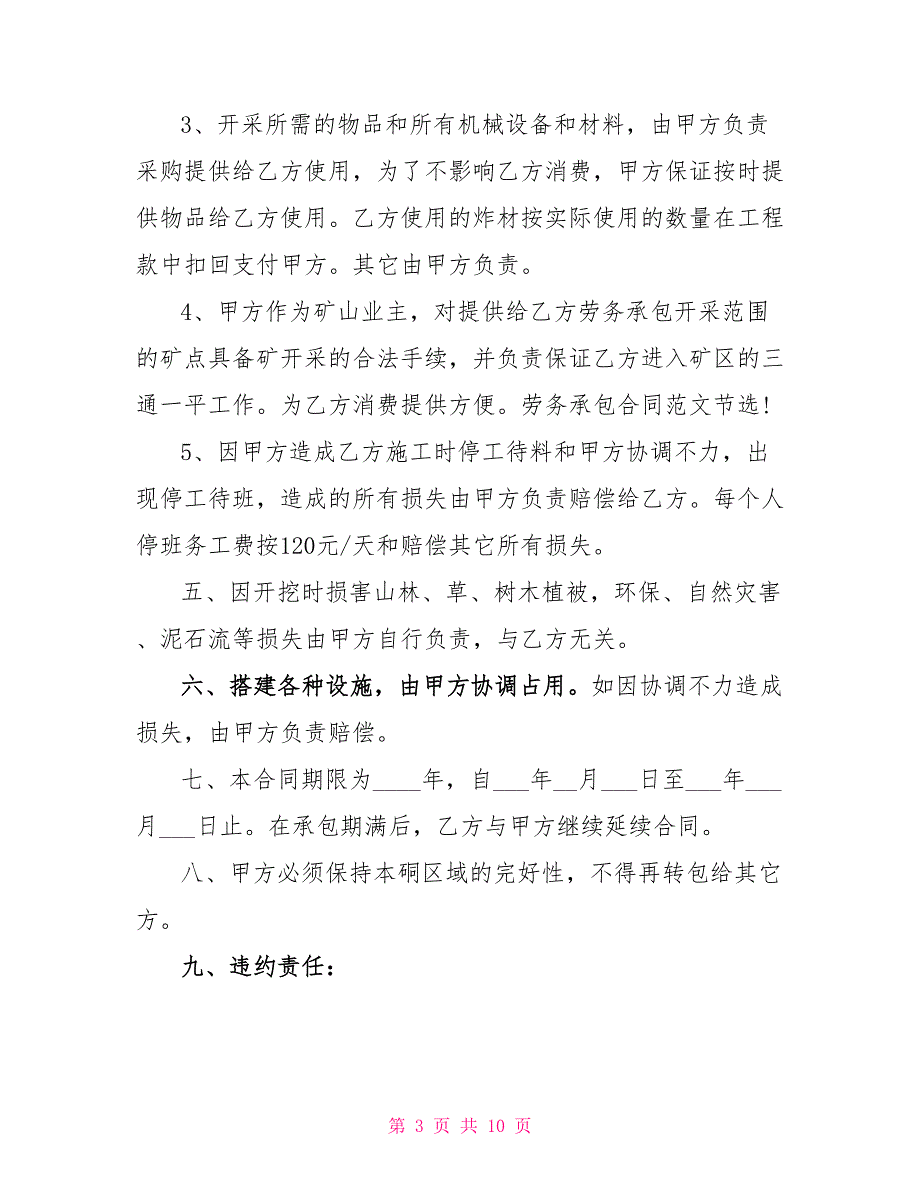 3、开采所需的物品和所有机械设备和材料，由甲方负责
采购提供给乙方使用，为了不影响乙方消费，甲方保证按时提
供物品给乙方使用。乙方使用的炸材按实际使用的数量在工程
款中扣回支付甲方。其它由甲方负责。
4、甲方作为矿山业主，对提供给乙方劳务承包开采范围
的矿点具备矿开采的合法手续，并负责保证乙方进入矿区的三
通一平工作。为乙方消费提供方便。劳务承包合同范文节选!
5、因甲方造成乙方施工时停工待料和甲方协调不力，出
现停工待班，造成的所有损失由甲方负责赔偿给乙方。每个人
停班务工费按120元/天和赔偿其它所有损失。
五、因开挖时损害山林、草、树木植被，环保、自然灾害
、泥石流等损失由甲方自行负责，与乙方无关。
六、搭建各种设施，由甲方协调占用。如因协调不力造成
损失，由甲方负责赔偿。
七、本合同期限为____年，自___年__月___日至___年___
月___日止。在承包期满后，乙方与甲方继续延续合同。
八、甲方必须保持本硐区域的完好性，不得再转包给其它
方。
九、违约责任：
第 3 页 共 10 页